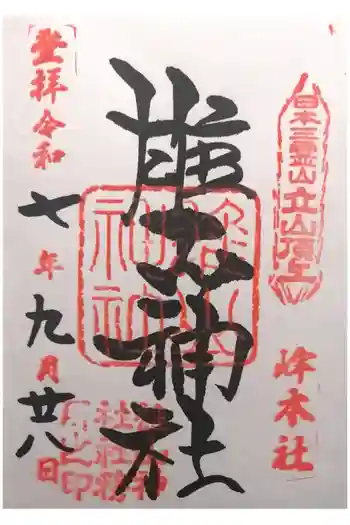 日本三霊山立山頂上
峰本社
雄山神社
登拝令和
七年九月廿八日
雄山
神社
神社
社務
之印